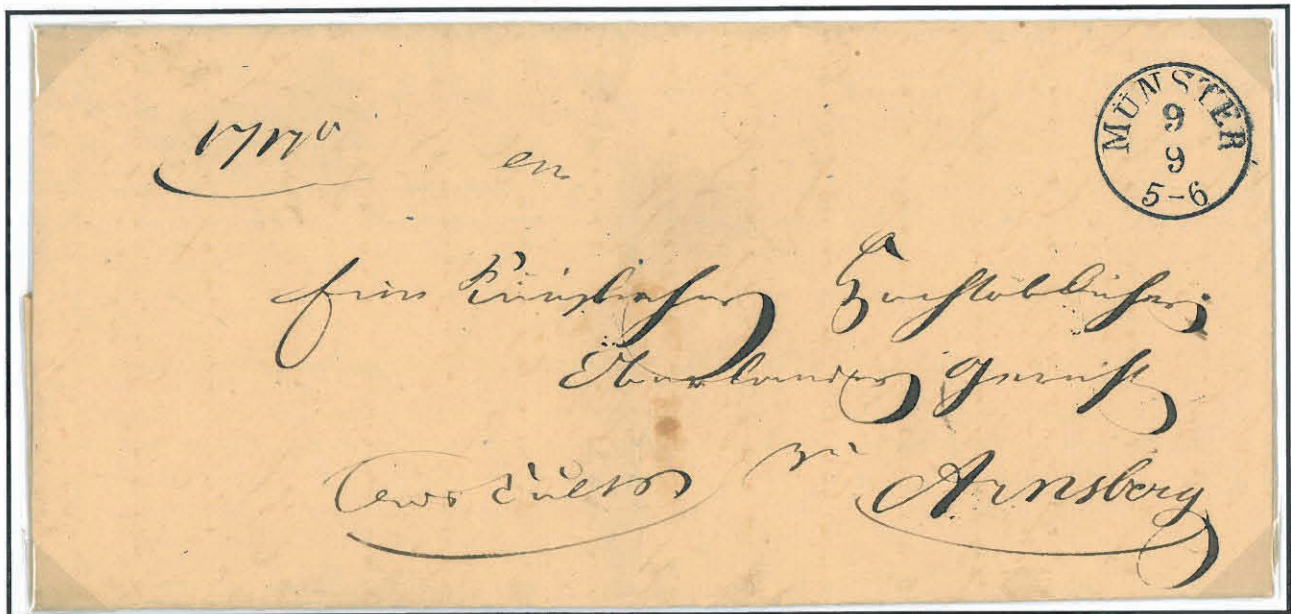 MÜNSTER
9
9
5-6
an
Ein Königliches Hochlöbliches
Oberlandes Gericht
zu Arnsberg